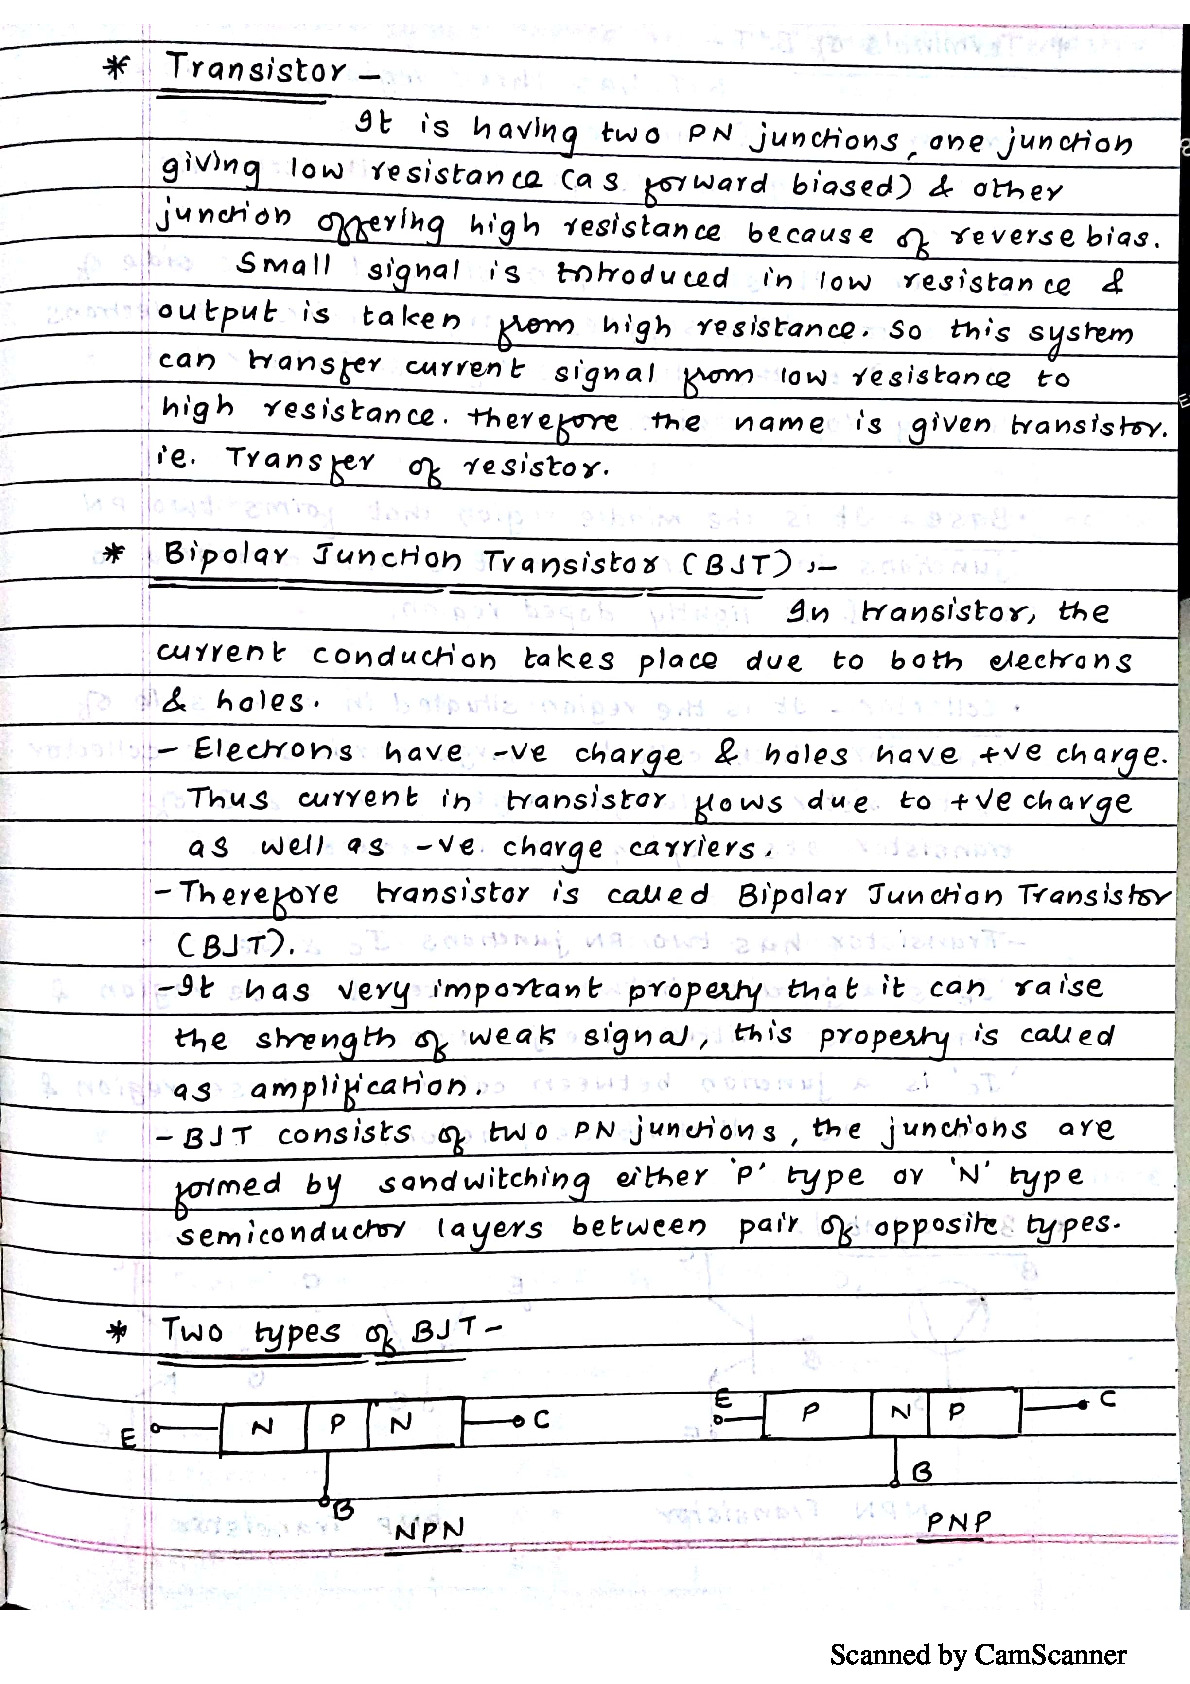 * Transistor -
It is having two PN junctions, one junction
giving low resistance (as forward biased) & other
junction offering high resistance because of reverse bias.
Small signal is introduced in low resistance &
output is taken from high resistance. So this system
can transfer current signal from low resistance to
high resistance. therefore the name is given transistor.
ie. Transfer of resistor.
* Bipolar Junction Transistor (BJT) :-
In transistor, the
current conduction takes place due to both electrons
& holes.
- Electrons have -ve charge & holes have +ve charge.
Thus current in transistor flows due to +ve charge
as well as -ve charge carriers.
- Therefore transistor is called Bipolar Junction Transistor
(BJT).
- It has very important property that it can raise
the strength of weak signal, this property is called
as amplification.
- BJT consists of two PN junctions, the junctions are
formed by sandwitching either 'P' type or 'N' type
semiconductor layers between pair of opposite types.
* Two types of BJT -
E N P N C
B
NPN
E P N P C
B
PNP
Scanned by CamScanner